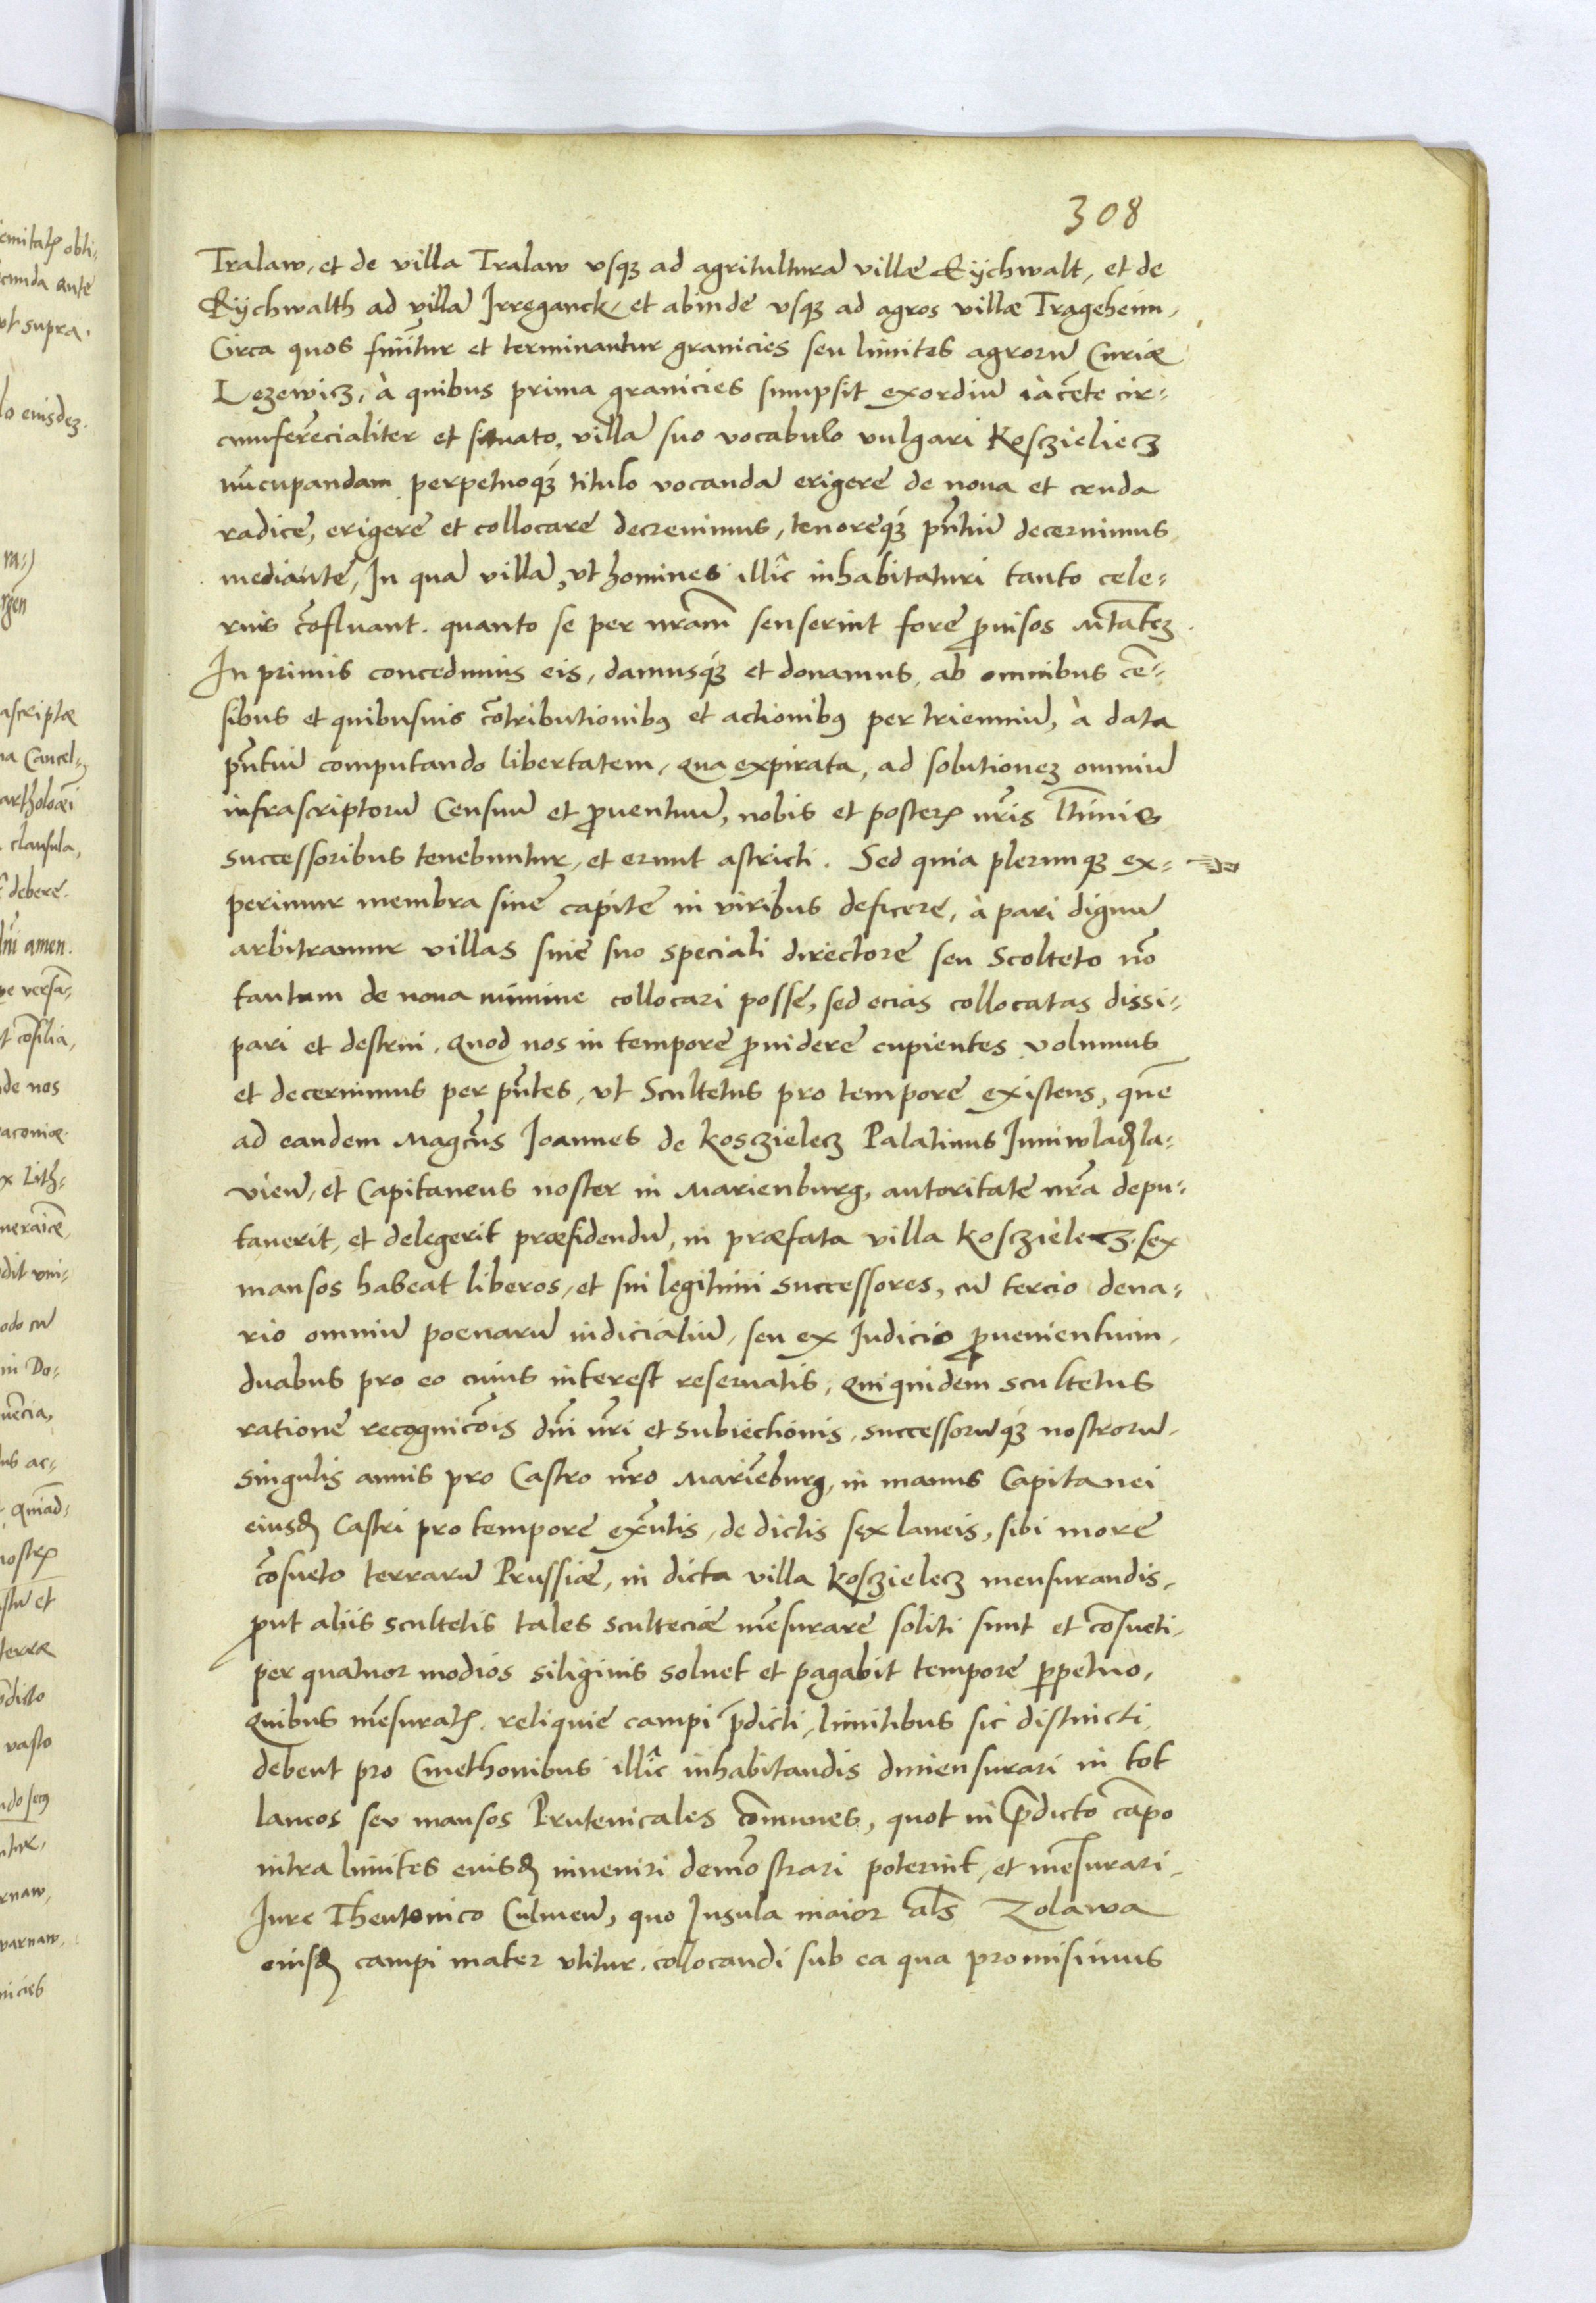 308
Tralaw, et de villa Tralaw vsqȝ ad agritulturā villæ Eychwalt, et de
Eychwalth ad villā Irreganck, et abinde vsqȝ ad agros villæ Trageheim,
Circa quos finiūtur et terminantur granicies seu limites agrorū Curiæ
Lezewicz, à quibus prima granicies sumpsit exordiū iacēte cir-
cumferēcialiter et situato, villā suo vocabulo vulgari Koszieliecz
nūcupandam perpetuoqȝ titulo vocandā erigere de noua et cruda
radice, erigere et collocare decreuimus, tenoreqȝ pn̄tiū decernimus
mediante, In qua villa, vt homines illîc inhabitaturi tanto cele-
rius cōfluant. quanto se per nram̄ senserint fore ꝓuisos Mtatē
In primis concedimus eis, damusqȝ et donamus, ab omnibus cē-
sibus et quibusuis cōtributionibꝰ et actionibꝰ per trienniū, à data
pn̄tiū computando libertatem, qua expirata, ad solutioneȝ omniū
infrascriptorū Censuū et ꝓuentuū, nobis et posterꝭ nr̄is ltīmis
successoribus tenebuntur, et erunt astricti. Sed quia plerunqȝ ex-
perimur membra sine capite in viribus deficere, à pari dignū
arbitramur villas sine suo speciali directore seu Scolteto nō
tantum de noua minime collocari posse, sed eciās collocatas dissi-
pari et destrui, quod nos in tempore ꝓuidere cupientes volumus
et decernimus per pn̄tes, vt Scultetus pro tempore existens, quē
ad eandem Magcūs Ioannes de Koszielecz Palatinus Iuniwladꝭla-
vieñ, et Capitaneus noster in Marienburg, autoritate nr̄a depu-
tauerit, et delegerit præsidendū, in præfata villa Koszielecz, sex
mansos habeat liberos, et sui legitimi successores, cū tercio dena-
rio omniū poenarū iudicialiū, seu ex Iudicio ꝓuenientium,
duabus pro eo cuius interest reseruatis, qui quidem scultetus
ratione recognicōis dn̄i nr̄i et subiectionis, successorūqȝ nostrorū,
singulis annis pro Castro nr̄o Mariēburg, in manus Capitanei
eiusdꝭ Castri pro tempore exn̄tis, de dictis sex laneis, sibi more
cōsueto terrarū Prussiæ, in dicta villa Koszielecz mensurandis,
ꝓut aliis scultetis tales sculteciæ mēsurare soliti sunt et cōsueti,
per quatuor modios siliginis soluet et pagabit tempore ꝑpetuo,
Quibus mēsuratꝭ, reliquie campi p̄dicti, limitibus sic distincti,
debent pro Cmethonibus illîc inhabitandis dimensurari in tot
laneos seu mansos Prutenicales cōmunes, quot in p̄dicto cāpo
intra limites eiusdꝭ inueniri demōstrari poterint, et mēsurari,
Iure Theutonico Culmeñ, quo Insula maior als̄ Zolawa
eiusdꝭ campi mater vtitur, collocandi sub ea qua promisimus